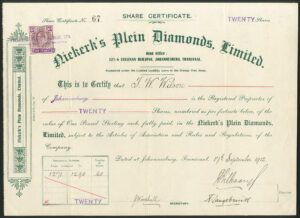 SHARE CERTIFICATE.
Share Certificate No. 67
TWENTY Shares
Niekerk's Plein Diamonds, Limited.
HEAD OFFICE:
JOHANNESBURG, TRANSVAAL.
This is to Certify that J. W. Wilson
of Johannesburg is the Registered Proprietor
of TWENTY Shares, numbered as per footnote below, of the
value of One Pound Sterling each fully paid, in the Niekerk's Plein Diamonds,
Limited, subject to the Articles of Association and Rules and Regulations of the
Company.
Dated at Johannesburg, Transvaal, 17th September 1912
1271 1290
TWENTY
SECRETARY
Niekerk's Plein Diamonds, Limited.